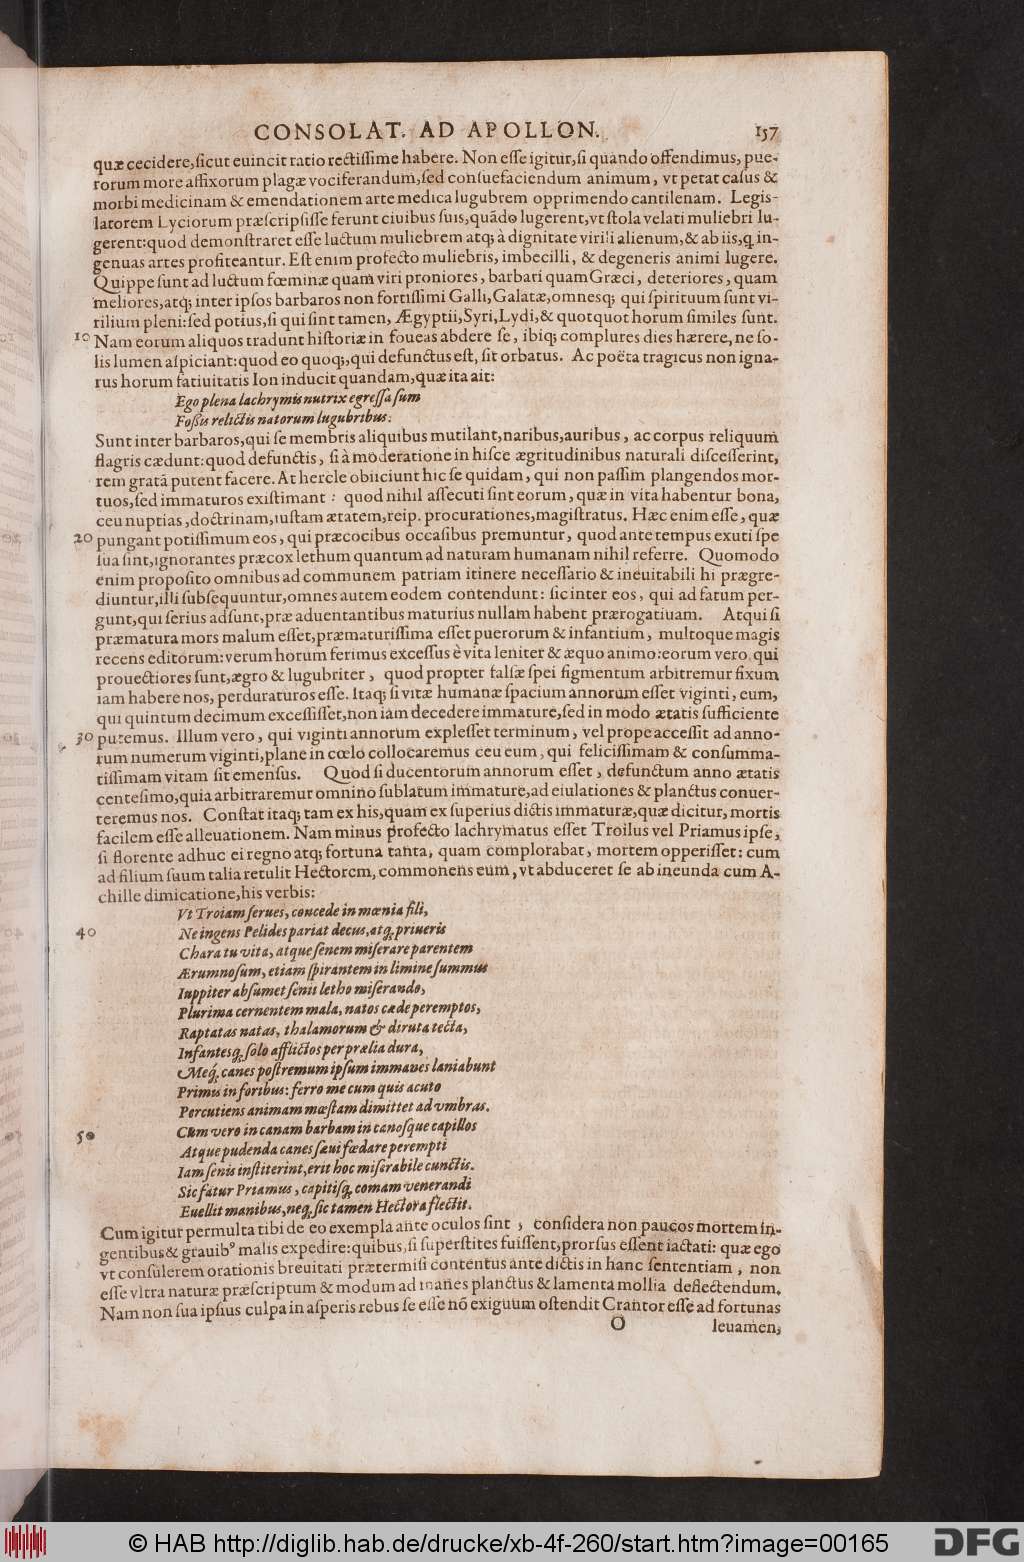 CONSOLAT. AD APOLLON. 157
quæ cecidere, ſicut euincit ratio rectiſſime habere. Non eſſe igitur, ſi quando offendimus, pue-
rorum more affixorum plagæ vociferandum, ſed conſuefaciendum animum, vt petat caſus &
morbi medicinam & emendationem arte medica lugubrem opprimendo cantilenam. Legis-
latorem Lyciorum præſcripſiſſe ferunt ciuibus ſuis, quãdo lugerent, vt ſtola velati muliebri lu-
gerent: quod demonſtraret eſſe luctum muliebrem atq; à dignitate virili alienum, & ab iis, q in-
genuas artes profiteantur. Eſt enim profecto muliebris, imbecilli, & degeneris animi lugere.
Quippe ſunt ad luctum fœminæ quam viri proniores, barbari quam Græci, deteriores, quam
meliores, atq; inter ipſos barbaros non fortiſſimi Galli, Galatæ, omnesq; qui ſpirituum ſunt vi-
rilium pleni: ſed potius, ſi qui ſint tamen, Ægyptii, Syri, Lydi, & quotquot horum ſimiles ſunt.
10 Nam eorum aliquos tradunt hiſtoriæ in foueas abdere ſe, ibiq; complures dies hærere, ne ſo-
lis lumen aſpiciant: quod eo quoq;, qui defunctus eſt, ſit orbatus. Ac poëta tragicus non igna-
rus horum fatiuitatis Ion inducit quandam, quæ ita ait:
Ego plena lachrymis nutrix egreſſa ſum
Foßis relictis natorum lugubribus.
Sunt inter barbaros, qui ſe membris aliquibus mutilant, naribus, auribus, ac corpus reliquum
flagris cædunt: quod defunctis, ſi à moderatione in hiſce ægritudinibus naturali diſceſſerint,
rem gratã putent facere. At hercle obiiciunt hic ſe quidam, qui non paſſim plangendos mor-
tuos, ſed immaturos exiſtimant: quod nihil aſſecuti ſint eorum, quæ in vita habentur bona,
ceu nuptias, doctrinam, iuſtam ætatem, reip. procurationes, magiſtratus. Hæc enim eſſe, quæ
20 pungant potiſſimum eos, qui præcocibus occaſibus premuntur, quod ante tempus exuti ſpe
ſua ſint, ignorantes præcox lethum quantum ad naturam humanam nihil referre. Quomodo
enim propoſito omnibus ad communem patriam itinere neceſſario & ineuitabili hi prægre-
diuntur, illi ſubſequuntur, omnes autem eodem contendunt: ſic inter eos, qui ad fatum per-
gunt, qui ſerius adſunt, præ aduentantibus maturius nullam habent prærogatiuam. Atqui ſi
præmatura mors malum eſſet, præmaturiſſima eſſet puerorum & infantium, multoque magis
recens editorum: verum horum ferimus exceſſus è vita leniter & æquo animo: eorum vero qui
prouectiores ſunt, ægro & lugubriter, quod propter falſæ ſpei figmentum arbitremur fixum
iam habere nos, perduraturos eſſe. Itaq; ſi vitæ humanæ ſpacium annorum eſſet viginti, eum,
qui quintum decimum exceſſiſſet, non iam decedere immature, ſed in modo ætatis ſufficiente
30 putemus. Illum vero, qui viginti annorum expleſſet terminum, vel prope acceſſit ad anno-
rum numerum viginti, plane in cœlo collocaremus ceu eum, qui feliciſſimam & conſumma-
tiſſimam vitam ſit emenſus. Quod ſi ducentorum annorum eſſet, defunctum anno ætatis
centeſimo, quia arbitraremur omnino ſublatum immature, ad eiulationes & planctus conuer-
teremus nos. Conſtat itaq; tam ex his, quam ex ſuperius dictis immaturæ, quæ dicitur, mortis
facilem eſſe alleuationem. Nam minus profecto lachrymatus eſſet Troilus vel Priamus ipſe,
ſi florente adhuc ei regno atq; fortuna tanta, quam complorabat, mortem opperiſſet: cum
ad filium ſuum talia retulit Hectorem, commonens eum, vt abduceret ſe ab ineunda cum A-
chille dimicatione, his verbis:
Vt Troiam ſerues, concede in mœnia fili,
40 Ne ingens Pelides pariat decus, atq; priueris
Chara tu vita, atque ſenem miſerare parentem
Ærumnoſum, etiam ſpirantem in limine ſummus
Iuppiter abſumet ſenii letho miſerando,
Plurima cernentem mala, natos cæde peremptos,
Raptatas natas, thalamorum & diruta tecta,
Infantesq; ſolo afflictos per prælia dura,
Meq; canes poſtremum ipſum immanes laniabunt
Primis in foribus: ferro me cum quis acuto
Percutiens animam mæſtam dimittet ad vmbras.
50 Cum vero in canam barbam in canoſque capillos
Atque pudenda canes ſæui fœdare perempti
Iam ſenis inſtiterint, erit hoc miſerabile cunctis.
Sic fatur Priamus, capitiſq; comam venerandi
Euellit manibus, neq; ſic tamen Hectora flectit.
Cum igitur permulta tibi de eo exempla ante oculos ſint, conſidera non paucos mortem in-
gentibus & grauibꝰ malis expedire: quibus, ſi ſuperſtites fuiſſent, prorſus eſſent iactati: quæ ego
vt conſulerem orationis breuitati prætermiſi contentus ante dictis in hanc ſententiam, non
eſſe vltra naturæ præſcriptum & modum ad inanes planctus & lamenta mollia deflectendum.
Nam non ſua ipſius culpa in aſperis rebus ſe eſſe nõ exiguum oſtendit Crantor eſſe ad fortunas
O leuamen,
© HAB http://diglib.hab.de/drucke/xb-4f-260/start.htm?image=00165
DFG